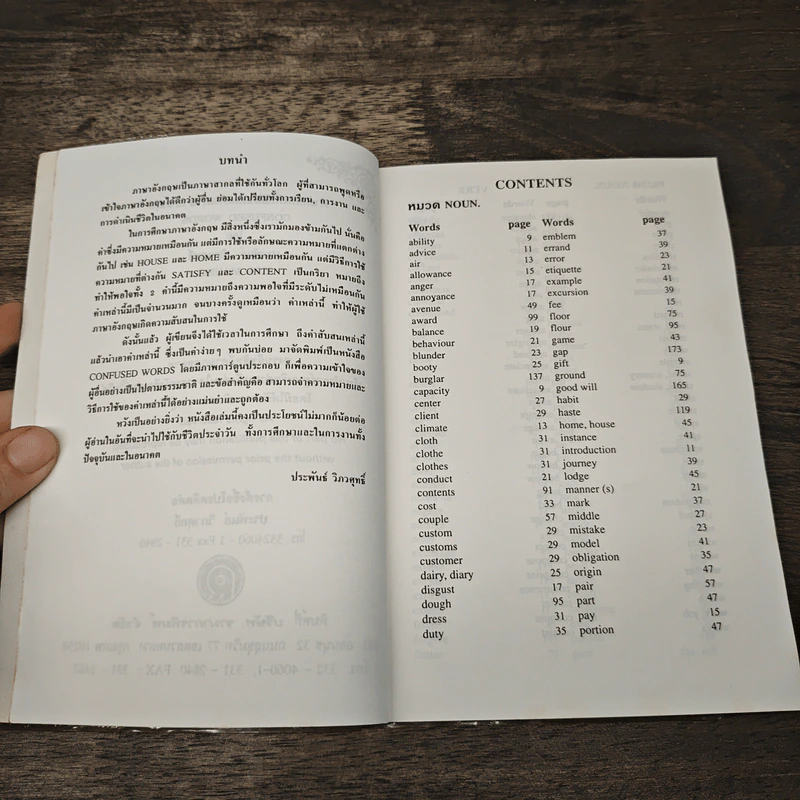 บทนำ
ภาษาอังกฤษเป็นภาษาสากลที่ใช้กันทั่วโลก ผู้ที่สามารถพูดหรือ
เข้าใจภาษาอังกฤษได้ดีกว่าผู้อื่น ย่อมได้เปรียบทั้งการเรียน, การงาน และ
การดำเนินชีวิตในอนาคต
ในการศึกษาภาษาอังกฤษ มีสิ่งหนึ่งซึ่งเรามักมองข้ามกันไป นั่นคือ
คำซึ่งมีความหมายเหมือนกัน แต่มีการใช้หรือลักษณะความหมายที่แตกต่าง
กันไป เช่น HOUSE และ HOME มีความหมายเหมือนกัน แต่มีวิธีการใช้
ความหมายที่ต่างกัน SATISFY และ CONTENT เป็นกริยา หมายถึง
ทำให้พอใจทั้ง 2 คำนี้มีความหมายถึงความพอใจที่มีระดับไม่เหมือนกัน
คำเหล่านี้มีเป็นจำนวนมาก จนบางครั้งดูเหมือนว่า คำเหล่านี้ ทำให้ผู้ใช้
ภาษาอังกฤษเกิดความสับสนในการใช้
ดังนั้นแล้ว ผู้เขียนจึงได้ใช้เวลาในการศึกษา ถึงคำสับสนเหล่านี้
แล้วนำเอาคำเหล่านี้ ซึ่งเป็นคำง่ายๆ พบกันบ่อย มาจัดพิมพ์เป็นหนังสือ
CONFUSED WORDS โดยมีภาพการ์ตูนประกอบ ก็เพื่อความเข้าใจของ
ผู้อื่นอย่างเป็นไปตามธรรมชาติ และข้อสำคัญคือ สามารถจำความหมายและ
วิธีการใช้ของคำเหล่านี้ได้อย่างแม่นยำและถูกต้อง
หวังเป็นอย่างยิ่งว่า หนังสือเล่มนี้คงเป็นประโยชน์ไม่มากก็น้อยต่อ
ผู้อ่านในอันที่จะนำไปใช้กับชีวิตประจำวัน ทั้งการศึกษาและในการงานทั้ง
ปัจจุบันและในอนาคต
ประพันธ์ วิภวศุทธิ์
CONTENTS
หมวด NOUN.
Words page Words page
ability 9 emblem 37
advice 11 errand 39
air 13 error 23
allowance 15 etiquette 21
anger 17 example 41
annoyance 17 excursion 39
avenue 49 fee 15
award 99 floor 75
balance 19 flour 95
behaviour 21 game 43
blunder 23 gap 173
booty 25 gift 9
burglar 137 ground 75
capacity 9 good will 165
center 27 habit 29
client 29 haste 119
climate 13 home, house 45
cloth 31 instance 41
clothe 31 introduction 11
clothes 31 journey 39
conduct 21 lodge 45
contents 91 manner (s) 21
cost 33 mark 37
couple 57 middle 27
custom 29 mistake 23
customs 29 model 41
customer 29 obligation 35
dairy, diary 25 origin 47
disgust 17 pair 57
dough 95 part 47
dress 31 pay 15
duty 35 portion 47